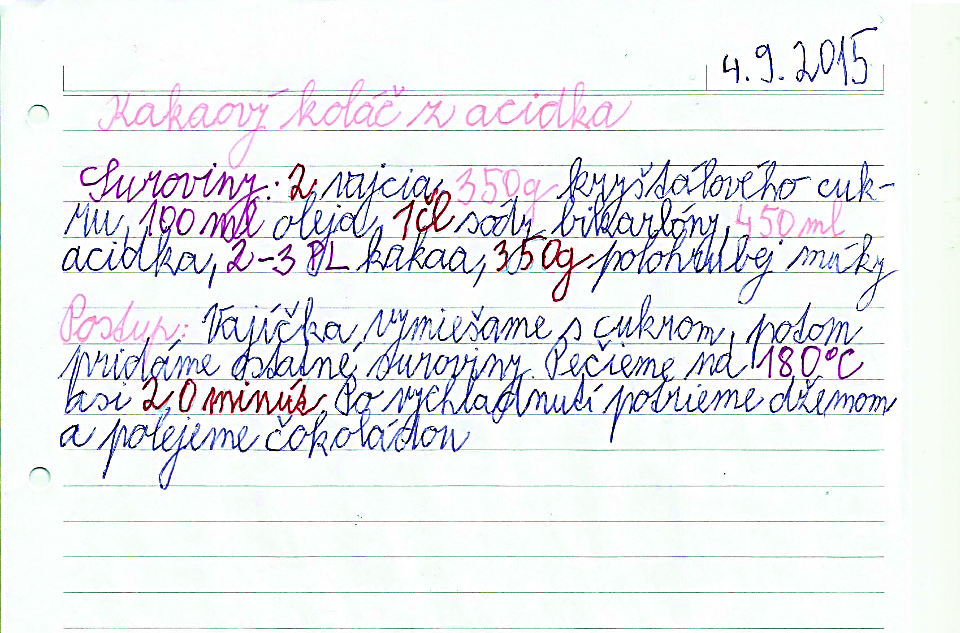 4.9.2015
Kakaový koláč z acidka
Suroviny: 2 vajcia, 350g kryštálového cuk-
ru, 100 ml oleja, 1čl sódy bikarbóny, 450 ml
acidka, 2-3 PL kakaa, 350g polohrubej múky
Postup: Vajíčka vymiešame s cukrom, potom
pridáme ostatné suroviny. Pečieme na 180°C
asi 20 minút. Po vychladnutí potrieme džemom
a polejeme čokoládou